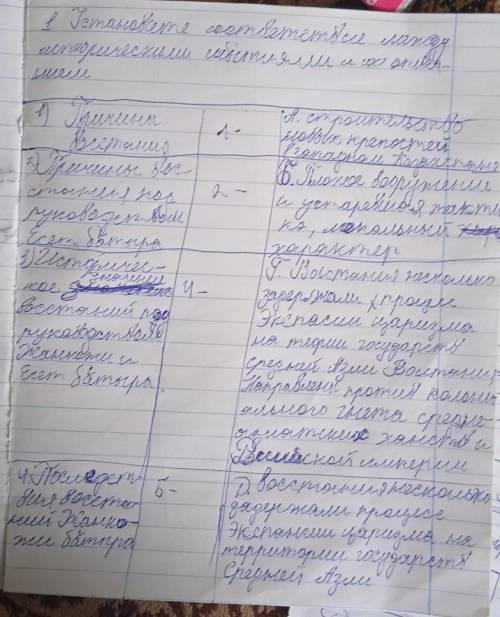 1 Установите соответствие между
историческими событиями и их описа-
нием
1) Причины
восстания
1-
А. строительство
новых крепостей
в западном Казахстане
2) Причины вос-
стания под
руководством
Есет батыра
2-
Б. Плохое вооружение
и устаревшая такти-
ка, локальный
характер
3) Историчес-
кое значение
восстаний под
руководством
Жанкожи и
Есет батыра
4-
Г. Восстания несколько
задержали процес
Экспасии царизма
на терии государств
средней Азии Восстания
направлены против колони-
ального гнета средне-
азиатских ханств и
Российской империи
4. Последст-
вия восста-
ний Жанко-
жи батыра
5-
Д. восстания несколько
задержали процесс
Экспансии царизма на
территории государств
Средней Азии